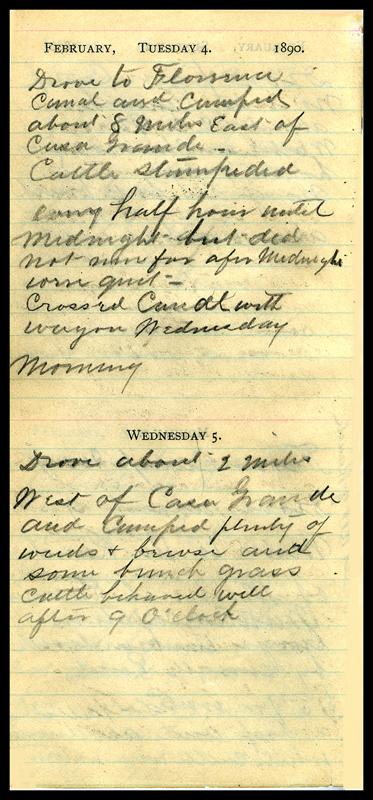 FEBRUARY, TUESDAY 4. 1890.
Drove to Florence
Canal and Camped
about 8 Miles East of
Casa Grande -
Cattle stampeded
evry half hour until
Midnight but did
not run far after Midnight
were quiet -
Crossed Canal with
wagon Wednesday
Morning
WEDNESDAY 5.
Drove about 2 Miles
West of Casa Grande
and Camped plenty of
weeds & browse and
some bunch grass
Cattle behaved well
after 9 O'clock